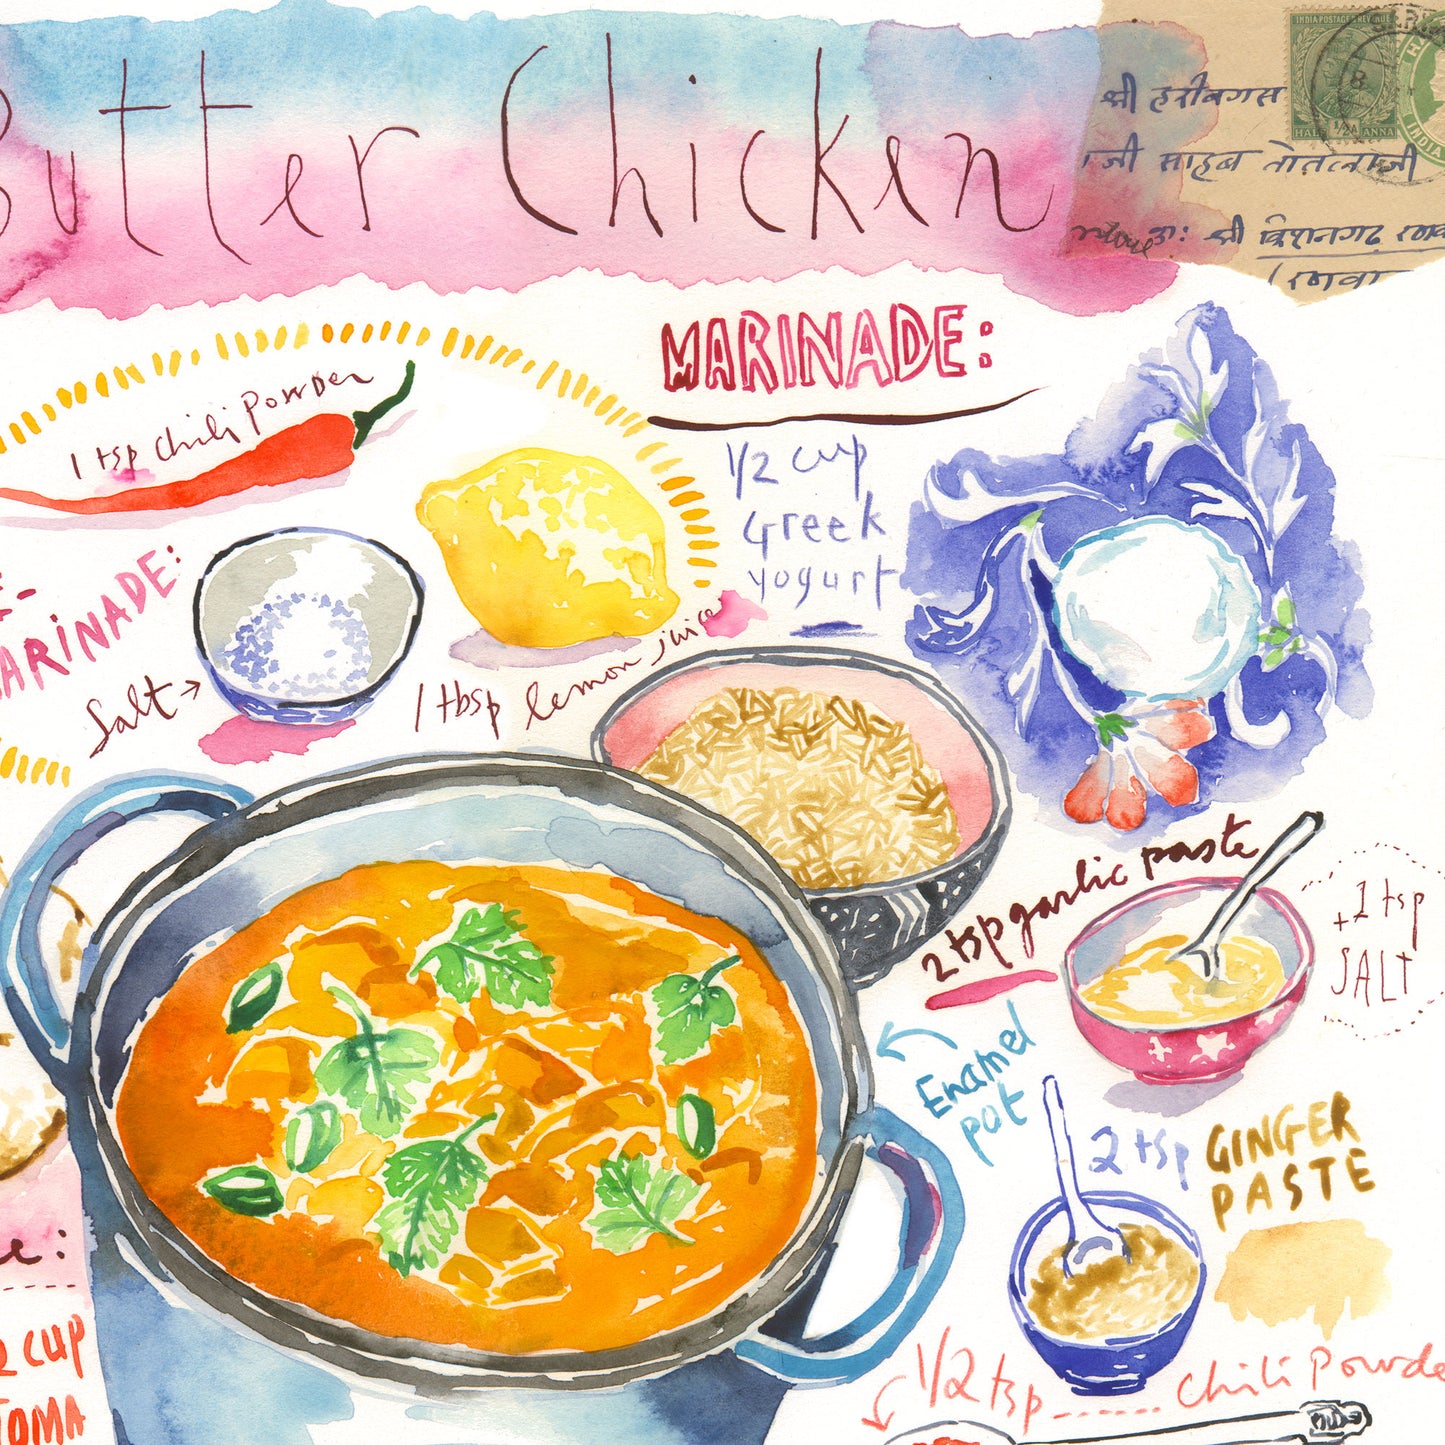 Butter Chicken
INDIA POSTAGE & REVENUE
HALF 1/2A ANNA
INDIA
श्री हरीबगस
जी साहब तोतलाजी
श्री किशनगढ़
1 tsp chili Powder
MARINADE:
1/2 cup
Greek
yogurt
ARINADE:
Salt →
1 tbsp lemon juice
2 tsp garlic paste
+ 1 tsp
SALT
Enamel
pot
2 tsp GINGER
PASTE
2 CUP
TOMA
1/2 tsp ------ Chili Powde